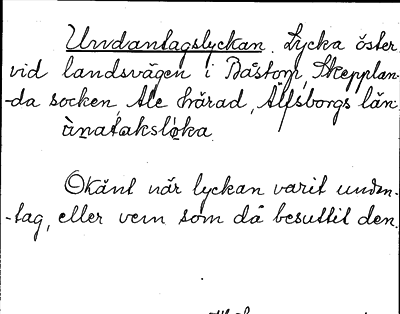 Undantagslyckan. Lycka öster
vid landsvägen i Båstorp, Skepplan-
-da socken Ale härad, Älfsborgs län,
ànatákslo̍ka
Okänt när lyckan varit undan-
-tag, eller vem som då besuttit den.